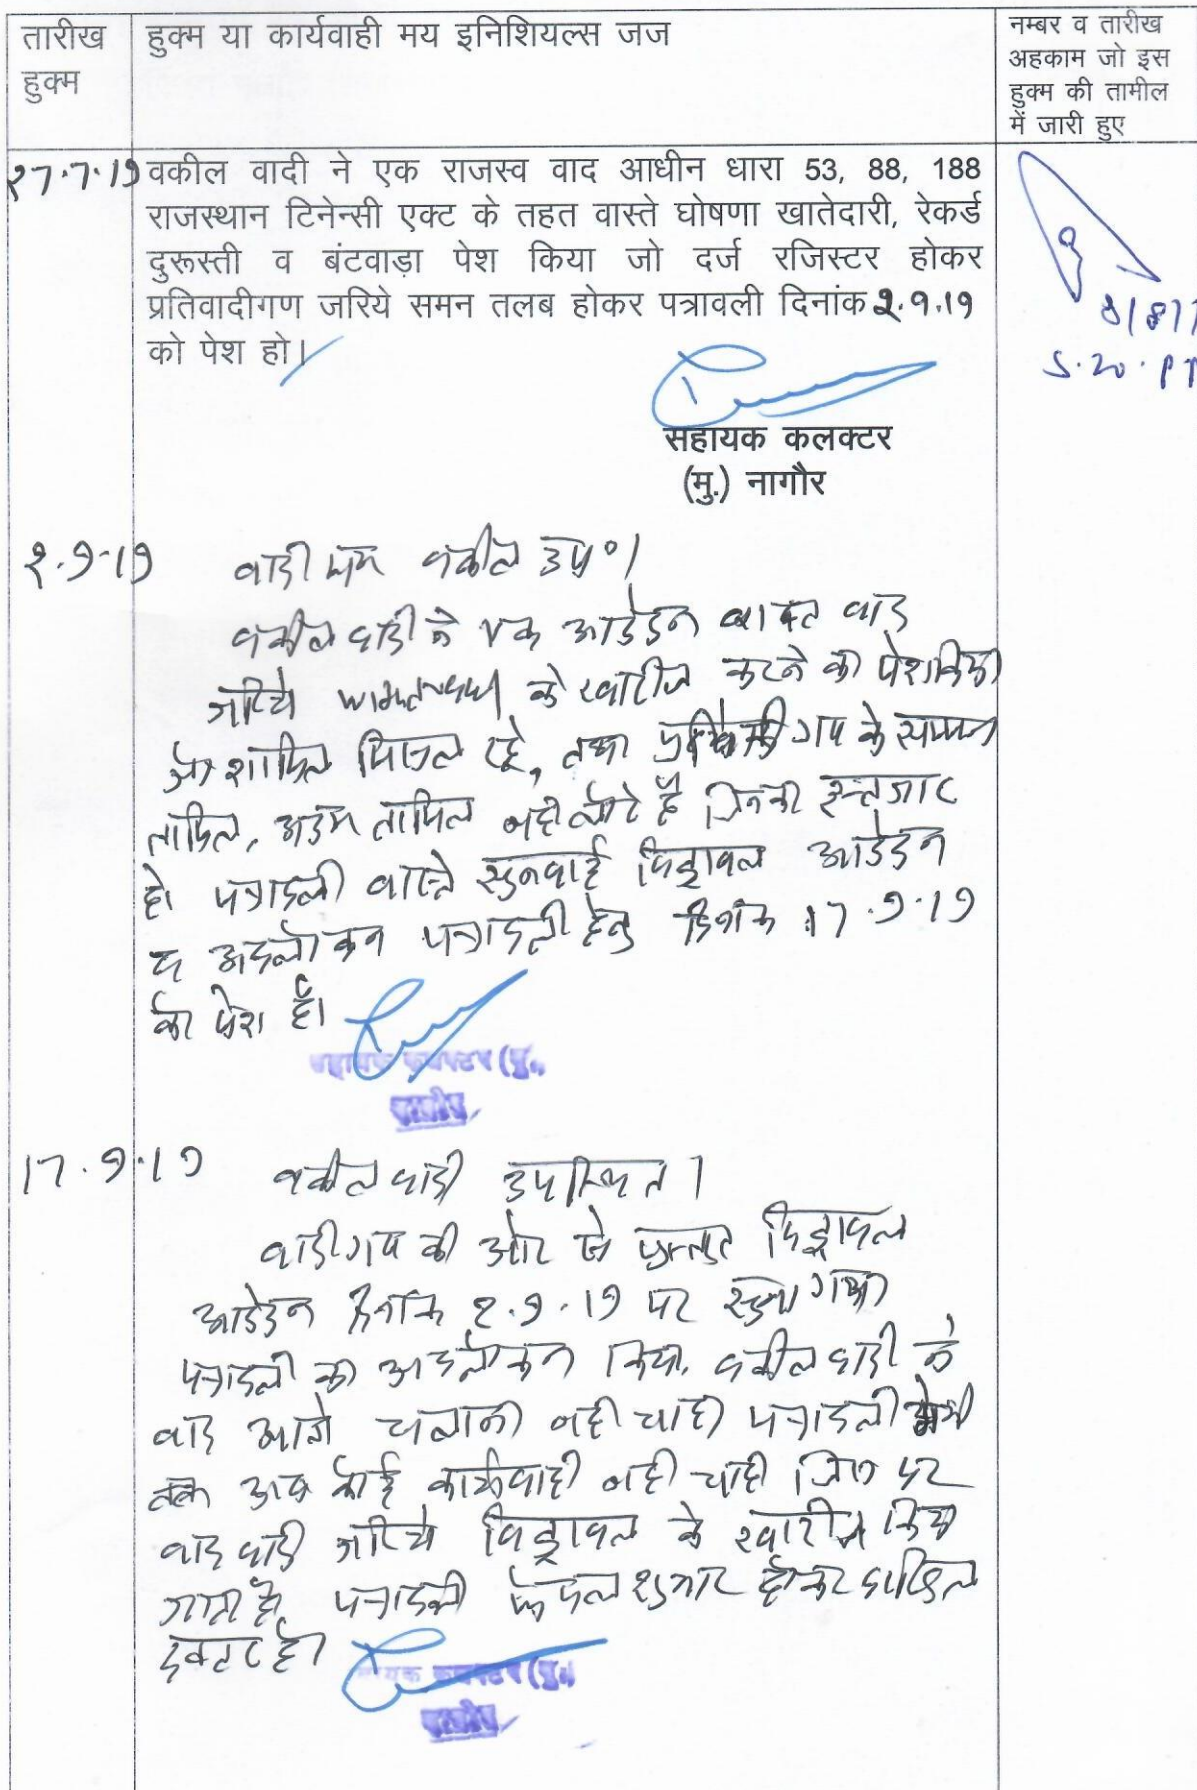 तारीख
हुक्म
हुक्म या कार्यवाही मय इनिशियल्स जज
नम्बर व तारीख
अहकाम जो इस
हुक्म की तामील
में जारी हुए
27.7.19 वकील वादी ने एक राजस्व वाद आधीन धारा 53, 88, 188
राजस्थान टिनेन्सी एक्ट के तहत वास्ते घोषणा खातेदारी, रेकर्ड
दुरूस्ती व बंटवाड़ा पेश किया जो दर्ज रजिस्टर होकर
प्रतिवादीगण जरिये समन तलब होकर पत्रावली दिनांक 2.9.19
को पेश हो।
सहायक कलक्टर
(मु.) नागौर
2.9.19 वादी मय वकील उप०।
वकील वादी ने एक आवेदन बाबत वाद
जरिये के खारीज करने का पेश किया
जो शामिल मिसल रहे, तथा प्रतिवादीगण के सम्मन
तामिल, अदम तामिल नही लौटे है जिनकी इन्तजार
हो पत्रावली वास्ते सुनवाई विड्रावल आवेदन
व अवलोकन पत्रावली हेतु दिनांक 17.9.19
को पेश हो।
सहायक कलक्टर (मु.)
नागौर
17.9.19 वकील वादी उपस्थित।
वादीगण की ओर से प्रस्तुत विड्रावल
आवेदन दिनांक 2.9.19 पर सुना गया
पत्रावली का अवलोकन किया, वकील वादी ने
वाद आगे चलाना नही चाही पत्रावली
अब कोई कार्यवाही नही चाही जिस पर
वाद वादी जरिये विड्रावल के खारीज किया
जाता है, पत्रावली फैसल शुमार होकर दाखिल
दफ्तर हो।
सहायक कलक्टर (मु.)
नागौर